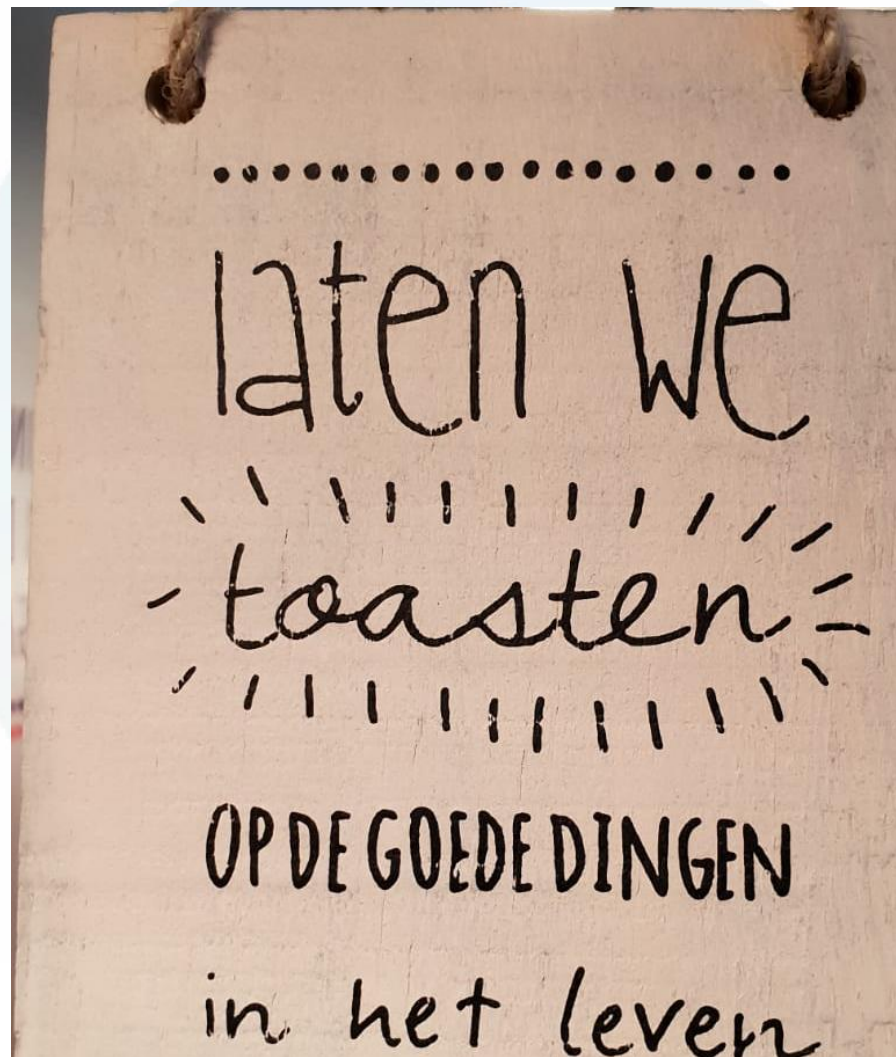 laten we
toasten
OP DE GOEDE DINGEN
in het leven